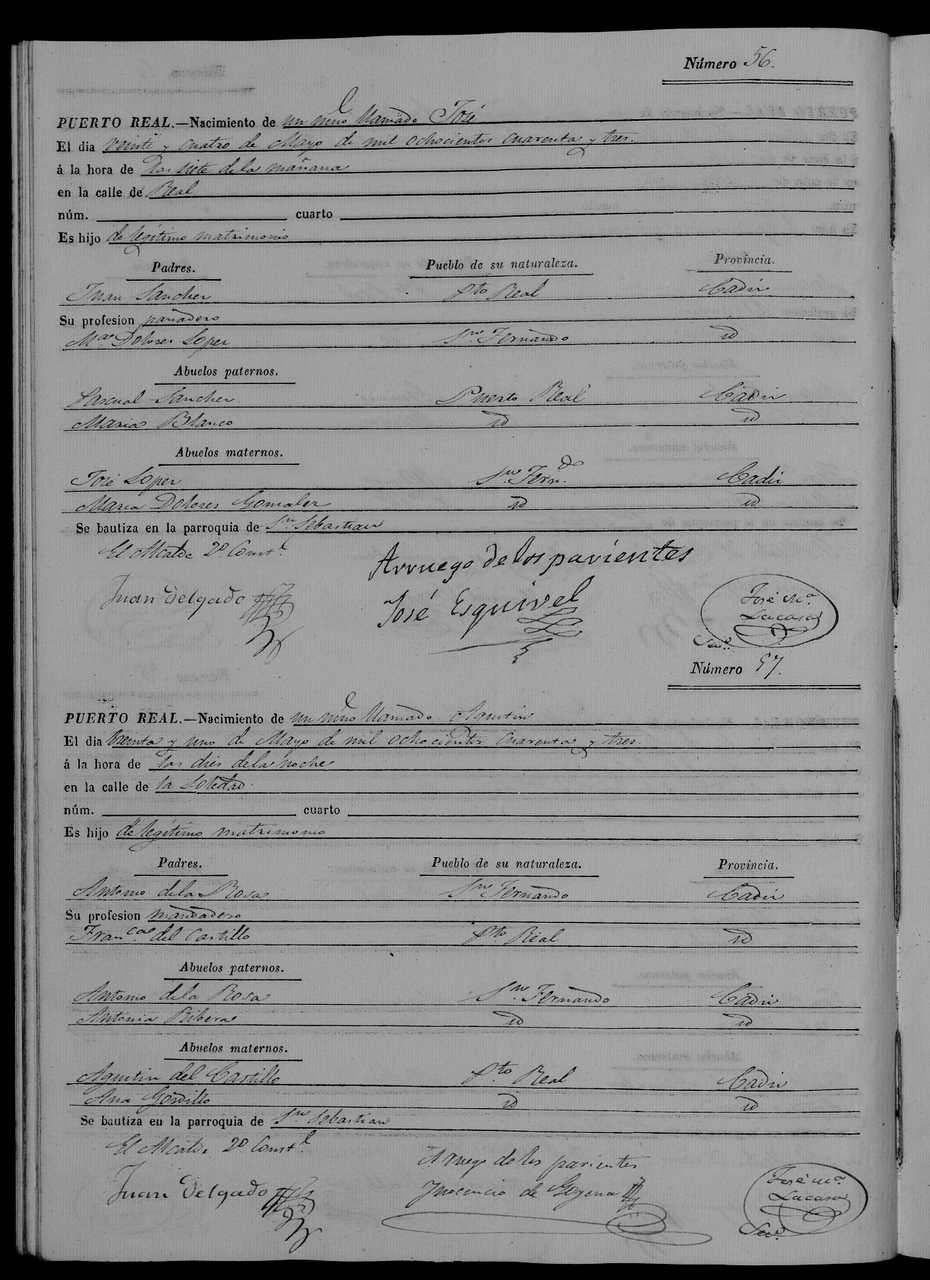 Número 56.
PUERTO REAL.—Nacimiento de un niño llamado José
El dia veinte y cuatro de Mayo de mil ochocientos cuarenta y tres.
á la hora de las siete de la mañana
en la calle de Real
núm. cuarto
Es hijo de legítimo matrimonio
Padres. Pueblo de su naturaleza. Provincia.
Juan Sanchez Pto Real Cadiz
Su profesion panadero
Ma Dolores Lopez Sn Fernando id
Abuelos paternos.
Pascual Sanchez Puerto Real Cadiz
Maria Blanco id id
Abuelos maternos.
José Lopez Sn Fern.do Cadiz
Maria Dolores Gonzalez id id
Se bautiza en la parroquia de Sn Sebastian
El Alcalde 2º Const.l
Arruego de los parientes
Juan Delgado José Esquivel José Mª Lucasa
Sec.º
Número 57.
PUERTO REAL.—Nacimiento de un niño llamado Agustin
El dia treinta y uno de Mayo de mil ochocientos cuarenta y tres.
á la hora de las dies de la noche
en la calle de la Soledad
núm. cuarto
Es hijo de legítimo matrimonio
Padres. Pueblo de su naturaleza. Provincia.
Antonio de la Rosa Sn Fernando Cadiz
Su profesion
Fran.ca del Castillo Pto Real id
Abuelos paternos.
Antonio de la Rosa Sn Fernando Cadiz
Antonia Ribera id id
Abuelos maternos.
Agustin del Castillo Pto Real Cadiz
Ana Gordillo id id
Se bautiza en la parroquia de Sn Sebastian
El Alcalde 2º Const.l
Arruego de los parientes
Juan Delgado Inocencio de Goyena José Mª Lucasa
Sec.º